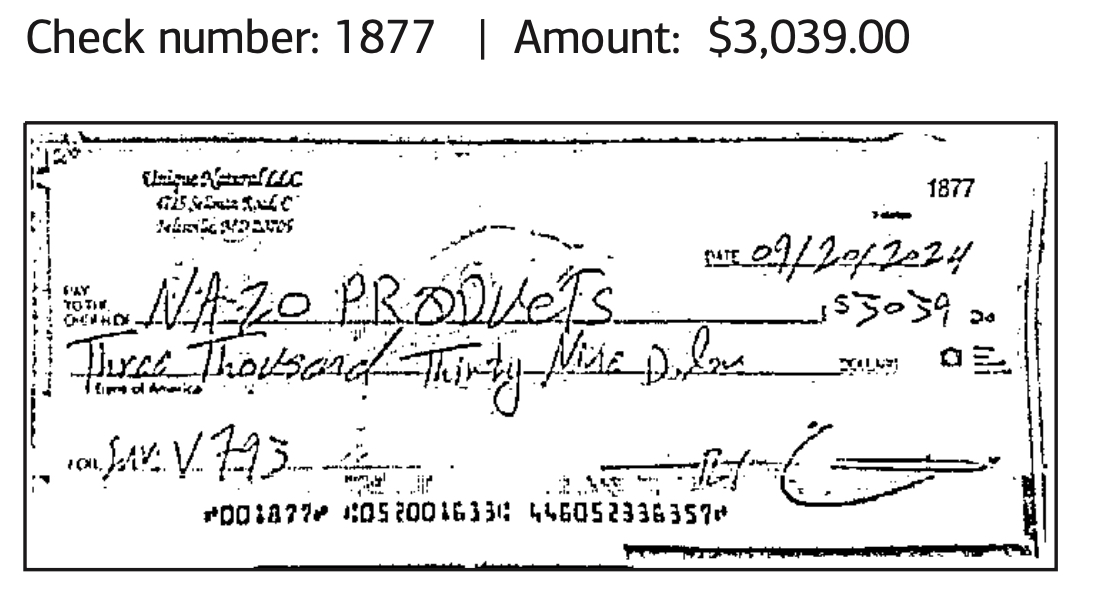 Check number: 1877 | Amount: $3,039.00
Unique Natural LLC
1877
DATE 09/20/2024
PAY TO THE ORDER OF NAZO PRODUCTS $3039 00
Three Thousand Thirty Nine Dollars DOLLARS
Bank of America
FOR INV: V793
⑈001877⑈ ⑆052001633⑆ 446052336357⑈